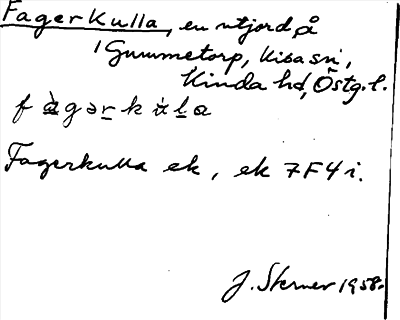 Fagerkulla, en utjord på
Gummetorp, Kisa sn,
Kinda hd, Östg. l.
fàgərkùla
Fagerkulla ek, ek 7F4i.
J. Sterner 1958.